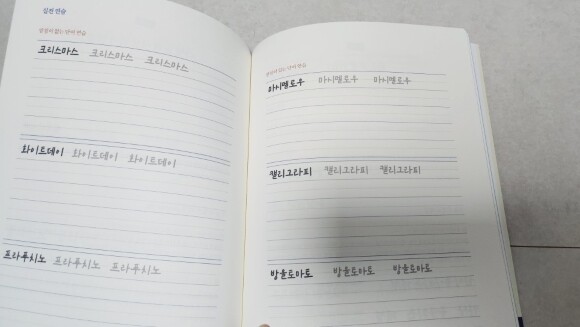 실전 연습
받침이 없는 단어 연습
크리스마스 크리스마스 크리스마스
화이트데이 화이트데이 화이트데이
프라푸치노 프라푸치노 프라푸치노
받침이 있는 단어 연습
마시멜로우 마시멜로우 마시멜로우
캘리그라피 캘리그라피 캘리그라피
방울토마토 방울토마토 방울토마토